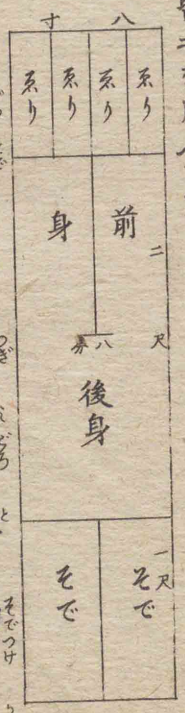 八寸
ゑり
ゑり
ゑり
ゑり
前身
二尺
八
後身
一尺
そで
そで
つぎ
そでつけ